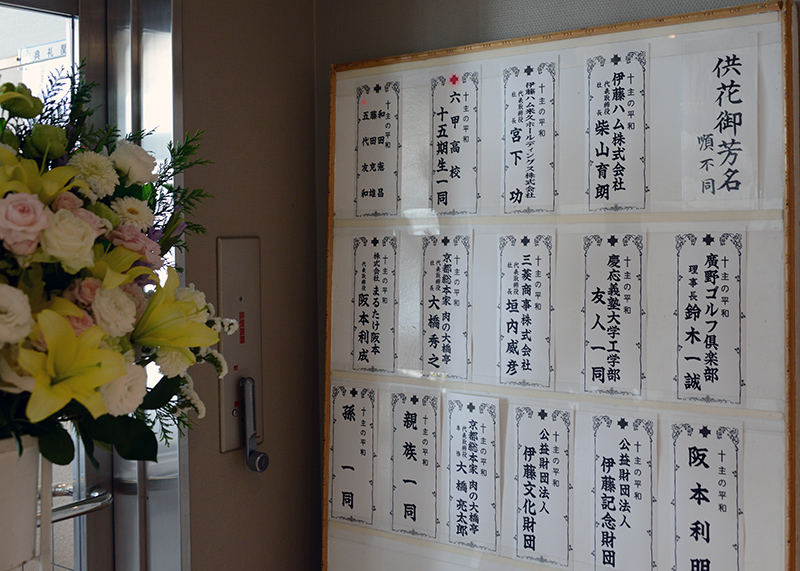 供花御芳名
順不同
主の平和
伊藤ハム株式会社
代表取締役
社長
柴山育朗
主の平和
伊藤ハム米久ホールディングス株式会社
代表取締役
社長
宮下功
主の平和
六甲高校
十五期生一同
主の平和
和田憲昌
藤田克雄
五代友和
主の平和
廣野ゴルフ倶楽部
理事長
鈴木一誠
主の平和
慶応義塾大学工学部
友人一同
主の平和
三菱商事株式会社
代表取締役
社長
垣内威彦
主の平和
京都総本家 肉の大橋亭
代表取締役
社長
大橋秀之
主の平和
株式会社 まるたけ阪本
代表取締役
阪本利成
主の平和
阪本利明
主の平和
公益財団法人
伊藤記念財団
主の平和
公益財団法人
伊藤文化財団
主の平和
京都総本家 肉の大橋亭
代表取締役
専務
大橋亮太郎
主の平和
親族一同
主の平和
孫一同